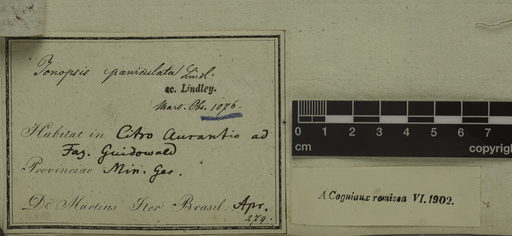 Ionopsis paniculata Lindl.
ec. Lindley.
Mart. Obs. 1076.
Habitat in Citro Aurantio ad
Faz. Guidowald
Provinciae Min. Ger.
Dr. Martius Iter Brasil. Apr.
279.
0 1 2 3 4 5 6 7
cm copyright
A Cogniaux remissa VI. 1902.